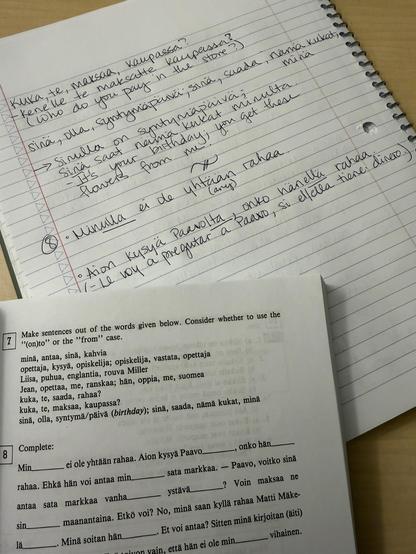 Kuka te, maksaa, kaupassa?
- Kenelle te maksatte kaupassa?
(Who do you pay in the store?)
sinä, olla, syntymäpäivä; sinä, saada, nämä kukat,
minä
→ Sinulla on syntymäpäivä;
sinä saat nämä kukat minulta
- It's your birthday; you get these
flowers from me.
⑧ • Minulla ei ole yhtään rahaa.
(any)
• Aion kysyä Paavolta, onko hänellä rahaa.
(- Le voy a preguntar a Paavo, si él/ella tiene dinero)
7 Make sentences out of the words given below. Consider whether to use the
"(on)to" or the "from" case.
minä, antaa, sinä, kahvia
opettaja, kysyä, opiskelija; opiskelija, vastata, opettaja
Liisa, puhua, englantia, rouva Miller
Jean, opettaa, me, ranskaa; hän, oppia, me, suomea
kuka, te, saada, rahaa?
kuka, te, maksaa, kaupassa?
sinä, olla, syntymä/päivä (birthday); sinä, saada, nämä kukat, minä
8 Complete:
Min____ ei ole yhtään rahaa. Aion kysyä Paavo____, onko hän____
rahaa. Ehkä hän voi antaa min____ sata markkaa. — Paavo, voitko sinä
antaa sata markkaa vanha____ ystävä____? Voin maksaa ne
sin____ maanantaina. Etkö voi? No, minä saan kyllä rahaa Matti Mäke-
lä____. Minä soitan hän____. Et voi antaa? Sitten minä kirjoitan (äiti)
vain, että hän ei ole min____ vihainen.